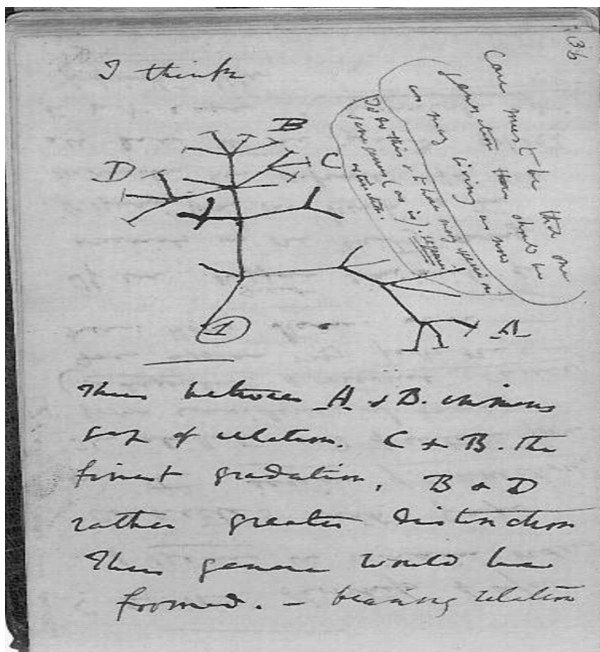 36
I think
Case must be that one
generation then should be
as many living as now
To do this & to have many species in
same genus (as is) requires
extinction.
B
C
D
A
1
Thus between A & B. immens
gap of relation. C & B. the
finest gradation, B & D
rather greater distinction
Thus genera would be
formed. — bearing relation